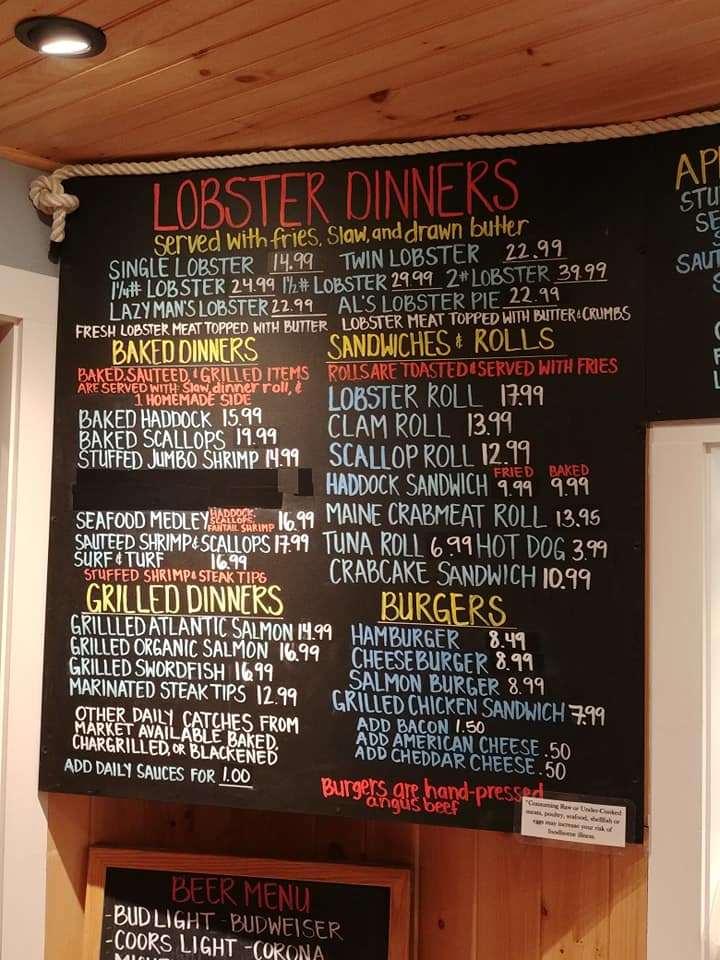 LOBSTER DINNERS
served with fries, slaw, and drawn butter
SINGLE LOBSTER 14.99 TWIN LOBSTER 22.99
1¼# LOBSTER 24.99 1½# LOBSTER 29.99 2# LOBSTER 39.99
LAZY MAN'S LOBSTER 22.99 AL'S LOBSTER PIE 22.99
FRESH LOBSTER MEAT TOPPED WITH BUTTER LOBSTER MEAT TOPPED WITH BUTTER & CRUMBS
BAKED DINNERS
BAKED, SAUTEED, & GRILLED ITEMS
ARE SERVED WITH slaw, dinner roll, &
1 HOMEMADE SIDE
BAKED HADDOCK 15.99
BAKED SCALLOPS 19.99
STUFFED JUMBO SHRIMP 14.99
SEAFOOD MEDLEY HADDOCK, SCALLOPS, FANTAIL SHRIMP 16.99
SAUTEED SHRIMP & SCALLOPS 17.99
SURF & TURF 16.99
STUFFED SHRIMP & STEAK TIPS
GRILLED DINNERS
GRILLLED ATLANTIC SALMON 14.99
GRILLED ORGANIC SALMON 16.99
GRILLED SWORDFISH 16.99
MARINATED STEAK TIPS 12.99
OTHER DAILY CATCHES FROM
MARKET AVAILABLE BAKED,
CHARGRILLED, OR BLACKENED
ADD DAILY SAUCES FOR 1.00
SANDWICHES & ROLLS
ROLLS ARE TOASTED & SERVED WITH FRIES
LOBSTER ROLL 17.99
CLAM ROLL 13.99
SCALLOP ROLL 12.99
FRIED BAKED
HADDOCK SANDWICH 9.99 9.99
MAINE CRABMEAT ROLL 13.95
TUNA ROLL 6.99 HOT DOG 3.99
CRABCAKE SANDWICH 10.99
BURGERS
HAMBURGER 8.49
CHEESEBURGER 8.99
SALMON BURGER 8.99
GRILLED CHICKEN SANDWICH 7.99
ADD BACON 1.50
ADD AMERICAN CHEESE .50
ADD CHEDDAR CHEESE .50
Burgers are hand-pressed
angus beef
"Consuming Raw or Under-Cooked
meats, poultry, seafood, shellfish or
eggs may increase your risk of
foodborne illness.
AP
STU
SE
SAUT
BEER MENU
-BUD LIGHT -BUDWEISER
-COORS LIGHT -CORONA